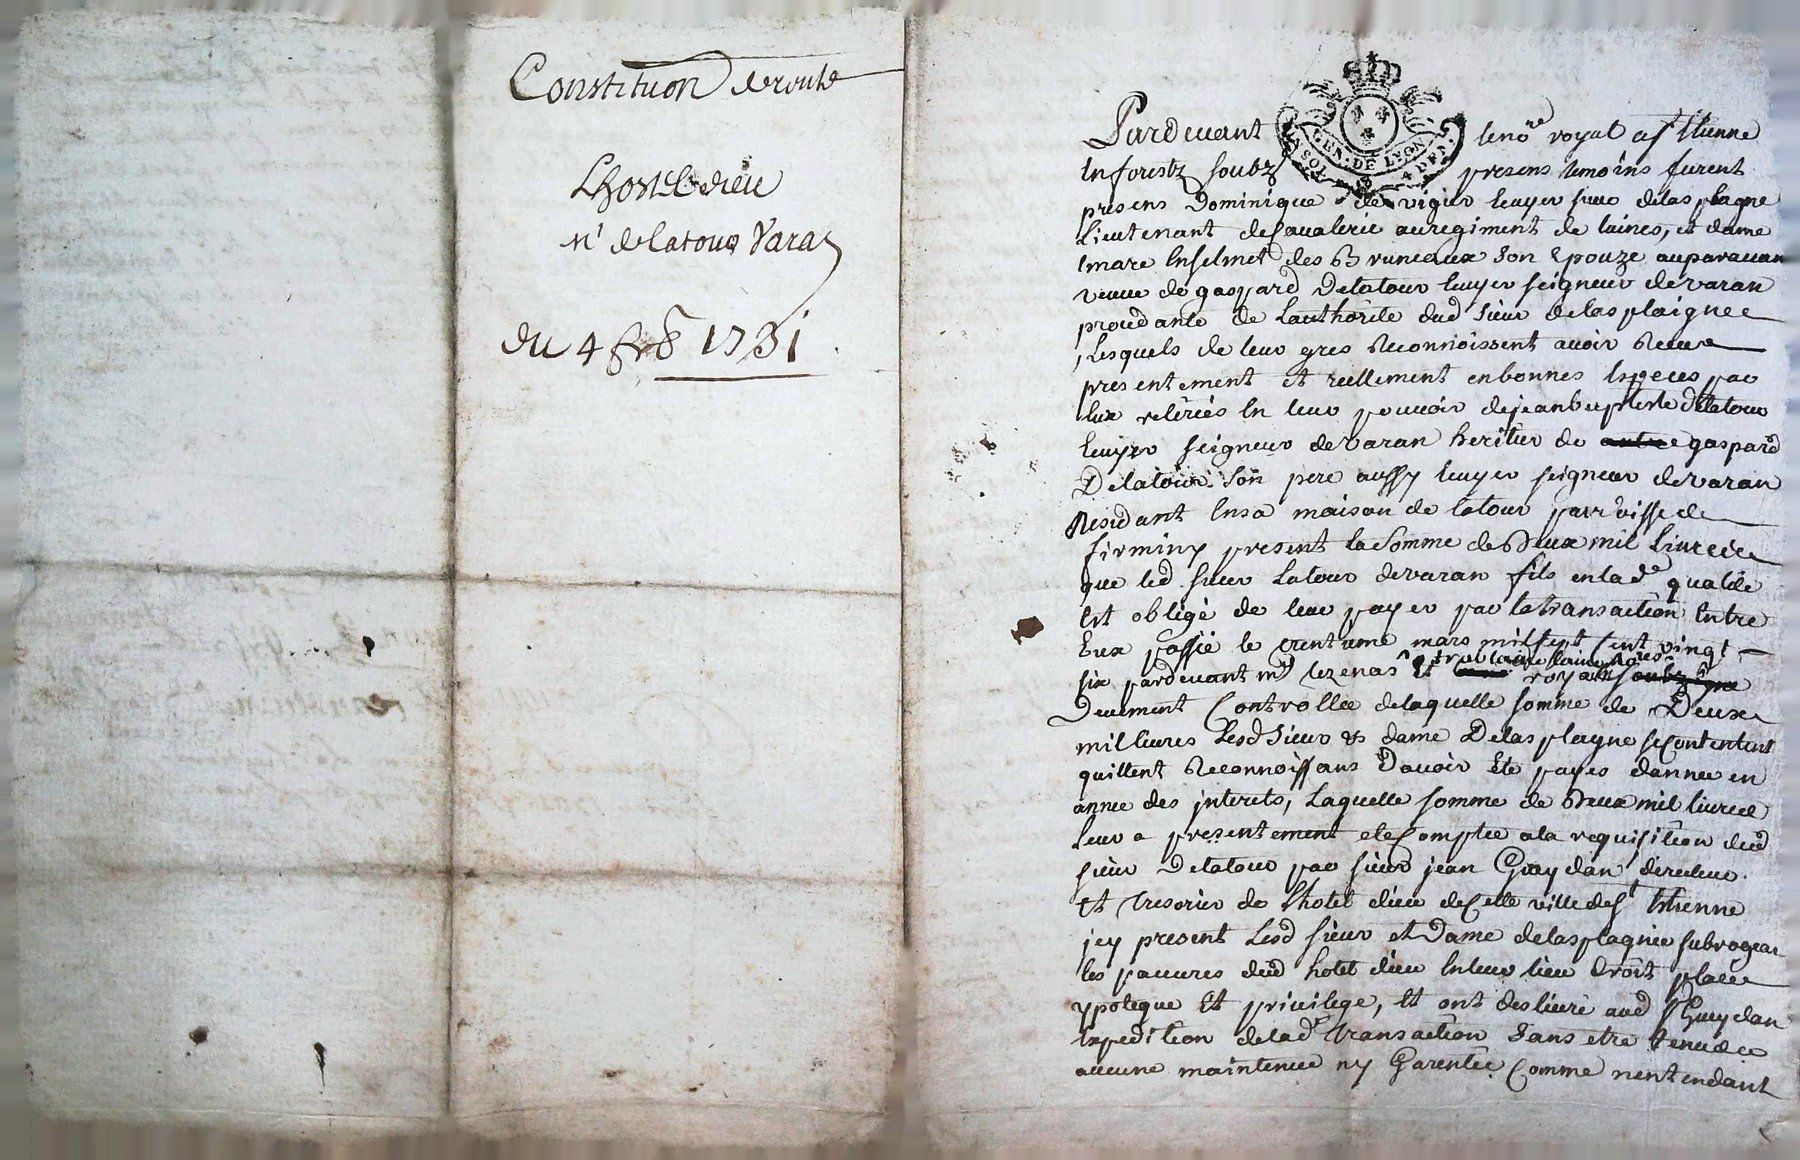 Constitution de rente
Lhostel dieu
Mr delatour Varan
du 4 fev 1731
GEN. DE LYON
4 DEN.
Pardevant le nore royal a St Etienne
en forestz soubz presens temoins furent
presens Dominique de vigier Ecuyer sieur delasplagne
Lieutenant de Cavalerie au regiment de et dame
Enselmet des Bruneaux son Epouze auparavan
veuve de gaspard Delatour Ecuyer seigneur devaran
procedante de Lauthorité dud sieur delasplaigne
Lesquels de leur gres Reconnoissent avoir Receu
presentement et reellement en bonnes Especes par
Eux retirées En leur pouvoir dejeanbaptiste Delatour
Ecuyer seigneur devaran heritier de gaspard
Delatour son pere aussy Ecuyer seigneur devaran
Residant Ensa maison de latour parroisse de
firminy present la Somme de Deux mil Livres
que led sieur Latour devaran fils en lad.e qualité
Est obligé de leur payer par la transaction Entre
Eux passée le trentieme mars mil sept cent vingt
six pardevant me royaux
Deuement Controllée delaquelle somme de Deux
mil livres Lesd Sieur & dame Delasplagne se Contentent
quittent Reconnoissans Davoir Eté payés dannée en
année des jnterets, Laquelle somme de Deux mil livres
leur a presentement eté Comptée a la requisition dud
sieur Delatour par sieur jean Guaydan directeur
et tresorier de Lhotel dieu de Cette ville de St Etienne
jcy present Lesd sieur et Dame delasplagne subrogeant
les pauvres dud hotel dieu En leur lieu Droit place
ypoteque Et privilege, Et ont deslivré aud Sr Guaydan
Expedition delad. transaction Sans etre tenu de
aucune maintenue ny Garentie Comme nentendant